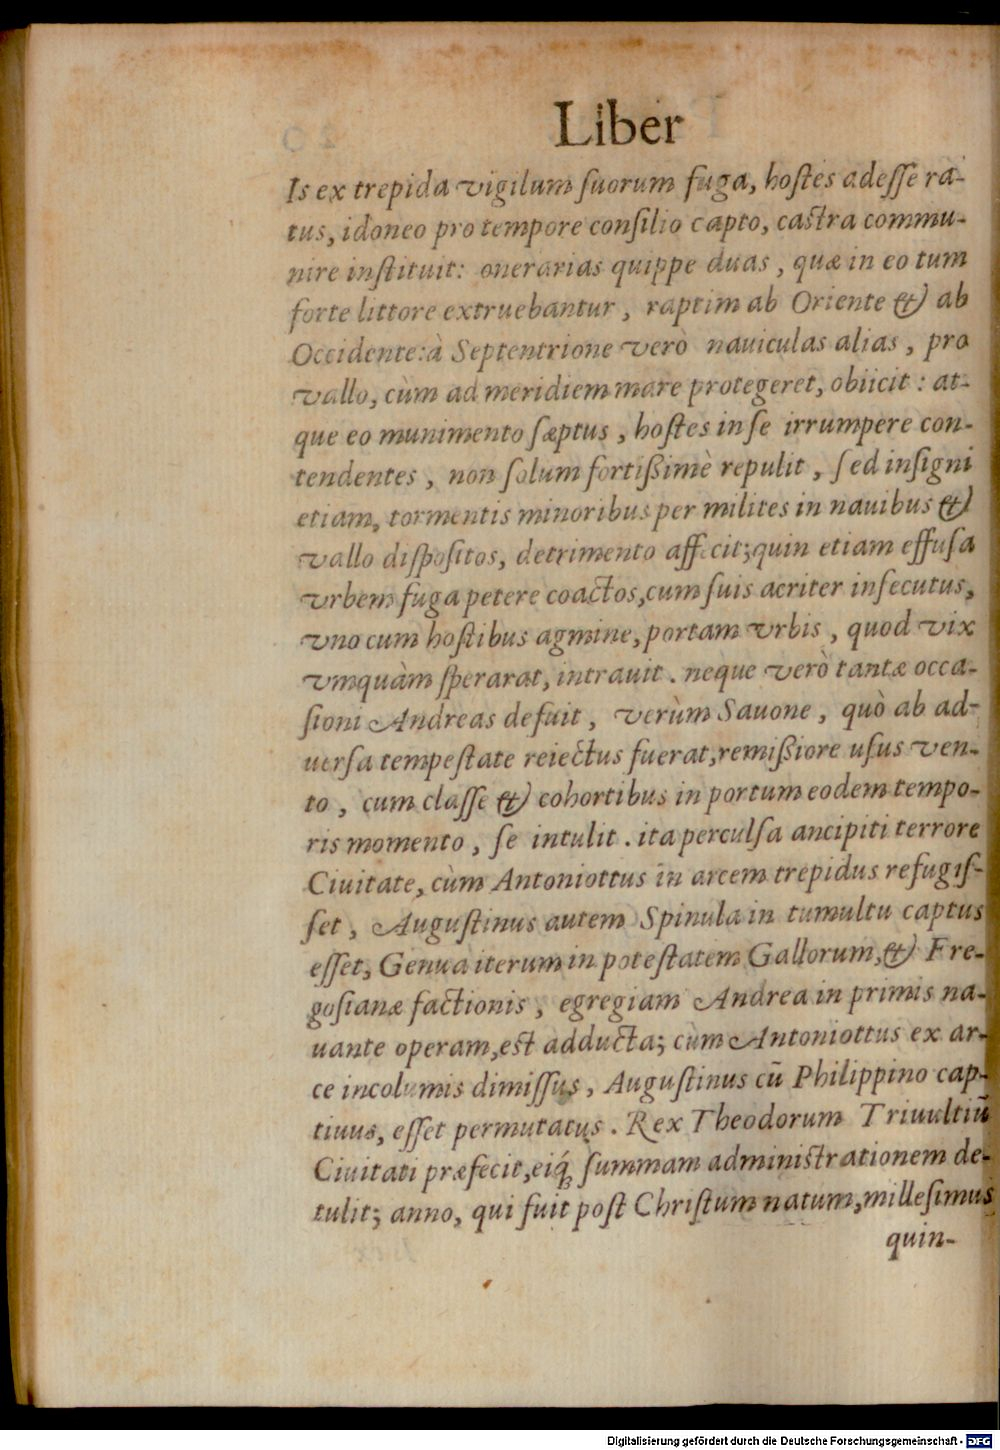 Liber
Is ex trepida vigilum suorum fuga, hostes adesse ra-
tus, idoneo pro tempore consilio capto, castra commu-
nire instituit: onerarias quippe duas, quæ in eo tum
forte littore extruebantur, raptim ab Oriente & ab
Occidente: à Septentrione verò nauiculas alias, pro
vallo, cùm ad meridiem mare protegeret, obiicit: at-
que eo munimento sæptus, hostes in se irrumpere con-
tendentes, non solum fortißimè repulit, sed insigni
etiam, tormentis minoribus per milites in nauibus &
vallo dispositos, detrimento affecit; quin etiam effusa
vrbem fuga petere coactos, cum suis acriter insecutus,
vno cum hostibus agmine, portam vrbis, quod vix
vmquàm sperarat, intrauit. neque verò tantæ occa-
sioni Andreas defuit, verùm Sauone, quò ab ad-
uersa tempestate reiectus fuerat, remißiore usus ven-
to, cum classe & cohortibus in portum eodem tempo-
ris momento, se intulit. ita perculsa ancipiti terrore
Ciuitate, cùm Antoniottus in arcem trepidus refugis-
set, Augustinus autem Spinula in tumultu captus
esset, Genua iterum in potestatem Gallorum, & Fre-
gosianæ factionis, egregiam Andrea in primis na-
uante operam, est adducta; cùm Antoniottus ex ar-
ce incolumis dimissus, Augustinus cū Philippino cap-
tiuus, esset permutatus. Rex Theodorum Triuultiū
Ciuitati præfecit, eiq́; summam administrationem de-
tulit; anno, qui fuit post Christum natum, millesimus
quin-
Digitalisierung gefördert durch die Deutsche Forschungsgemeinschaft - DFG